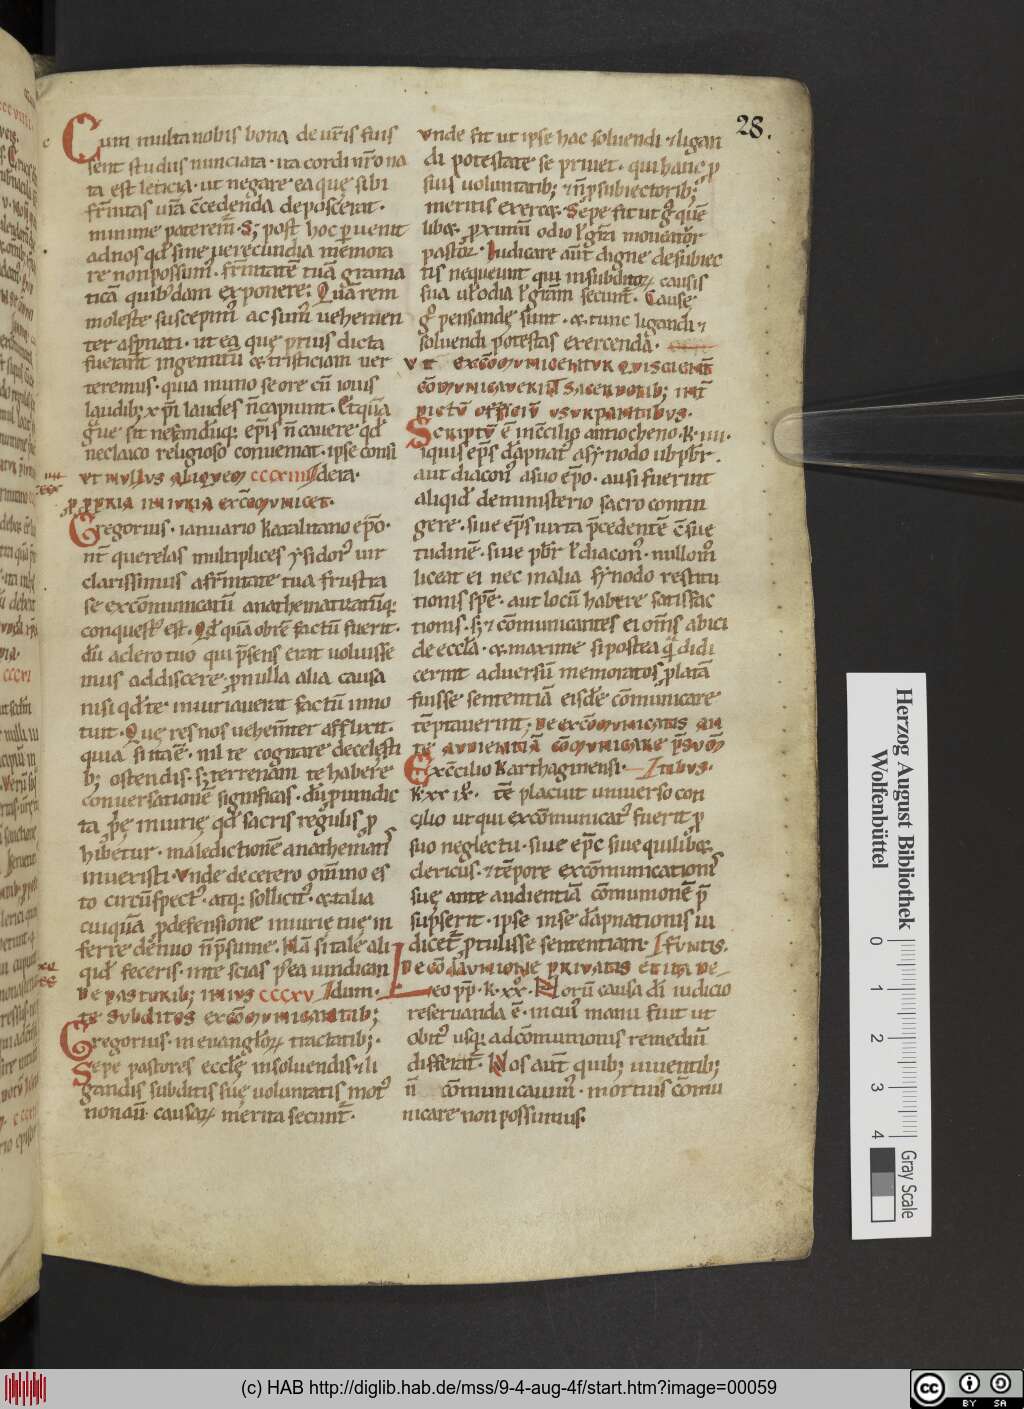 28.
Cum multa nobis bona de ur̄is fuis
sent studiis nunciata · ita cordi nr̄o na
ta est leticia · ut negare ea quę sibi
fr̄nitas ur̄a c̄cedenda deposcerat ·
minime paterem̄ · S; post hoc ꝑuenit
ad nos qd̄ sine uerecundia memora
re non possum᾽ · fr̄nitatē tuā grama
ticā quibꝰdam exponere; Quā rem
moleste suscepim᾽ ac sum᾽ uehemen
ter aspnati · ut ea quę prius dicta
fuerant in gemitū & tristiciam uer
teremus · quia in uno se ore cū iouis
laudib; xp̄i laudes n̄ capiunt · Et quā
graue sit nefandūq; ep̄is n̄ cauere qd̄
nec laico religioso conueniat · ipse consi
VT NVLLVS ALIQVEM CCCXIIII dera ·
ꝓ ꝓPRIA INIVRIA EXCŌMVNICET ·
Gregorius · ianuario karalitano ep̄o ·
int̄ querelas multiplices ysidor᾽ uir
clarissimus a fr̄nitate tua frustra
se excōmunicatū anathematizatūq;
conquest᾽ est · Qd̄ quā ob rē factū fuerit ·
dū a clero tuo qui p̄sens erat uoluisse
mus addiscere · ꝓ nulla alia causa
nisi qd̄ te iniuriauerat factū inno
tuit · Quę res nos uehem̄ter afflixit ·
quia si ita ē · nil te cogitare de celesti
b; ostendis · s; terrenam te habere
conuersationē significas · dū ꝓ uindic
ta ꝓpę iniurię qd̄ sacris regulis ꝓ
hibetur · maledictionē anathematis
inuexisti · Vnde de cetero om̄ino es
to circūspect᾽ · atq; sollicit᾽ · & talia
cuiquā ꝓ defensione iniurię tuę in
ferre denuo n̄ p̄sume · Nā si tale ali
qid᾽ feceris · in te scias p᾽ea uindican
DE PASTORIB; INIVS CCCXV dum ·
TE SVBDITOS EXCŌMVNICANTIB;
Gregorius · in euangl̄orꝝ tractatib; ·
Sepe pastores eccl̄ę in soluendis · & li
gandis subditis suę uoluntatis mot᾽
non aū causarꝝ merita secunt̄ ·
Vnde fit ut ipse hac soluendi & ligan
di potestate se priuet · qui hanc ꝓ
suis uoluntatib; & n̄ ꝓ subiectorib;
meritis exercet · Sepe fit ut ḡ quē
libet ꝓximū odio ł gr̄a moueatur
pastor · Iudicare aūt digne de subiec
tis nequeunt qui in subditorꝝ causis
sua uł odia ł gr̄am secunt̄ · Causę
ḡ pensandę sunt · & tunc ligandi &
soluendi potestas exercenda ·
VT EXCŌMVNICENTVR QVI SCIENT̄
CŌMVNICAVERINT SACERDOTIB; INT̄
DICTV̄ OFFICIV̄ VSVRPANTIBVS ·
Scriptū ē in c̄cilio antiocheno · k · iiii ·
Si quis ep̄s dāpnat᾽ a synodo ul pb̄r ·
aut diacon᾽ a suo ep̄o · ausi fuerint
aliqid᾽ de ministerio sacro contin
gere · siue ep̄s iuxta p̄cedentē c̄sue
tudinē · siue pb̄r ł diacon᾽ · nullom᾽
liceat ei nec in alia synodo restitu
tionis spē · aut locū habere satisfac
tionis · s; & cōmunicantes ei om̄s abici
de eccl̄a · & maxime si postea q̄ didi
cerint aduersū memoratos ꝓlatā
fuisse sententiā eisdē cōmunicare
tēptauerint; DE EXCŌMVNICATIS AN
TE AVDIENTIĀ CŌMVNICARE P̄SVM̄
Ex c̄cilio Karthaginensi · TIBVS ·
K · xx ix · tē placuit uniuerso con
cilio ut qui excōmunicat᾽ fuerit ꝓ
suo neglectu · siue ep̄c siue quilibet
clericus · & tēpore excōmunicationis
suę ante audientiā cōmunionē p̄
supserit · ipse in se dāpnationis iu
dicet᾽ ꝓtulisse sententiam · FVNTIS ·
DE CŌDĀVNIONE PRIVATIS ET ITA DE
Leo pp̄ · k · xx̄ · Horū causa dī iudicio
reseruanda ē · in cui᾽ manu fuit ut
obit᾽ usq; ad cōmunionis remediū
differat᾽ · Nos aūt quib; uiuentib;
n̄ cōmunicauim᾽ · mortuis cōmu
nicare non possumus ·
Herzog August Bibliothek
Wolfenbüttel
0 1 2 3 4
Gray Scale
(c) HAB http://diglib.hab.de/mss/9-4-aug-4f/start.htm?image=00059
cc BY SA